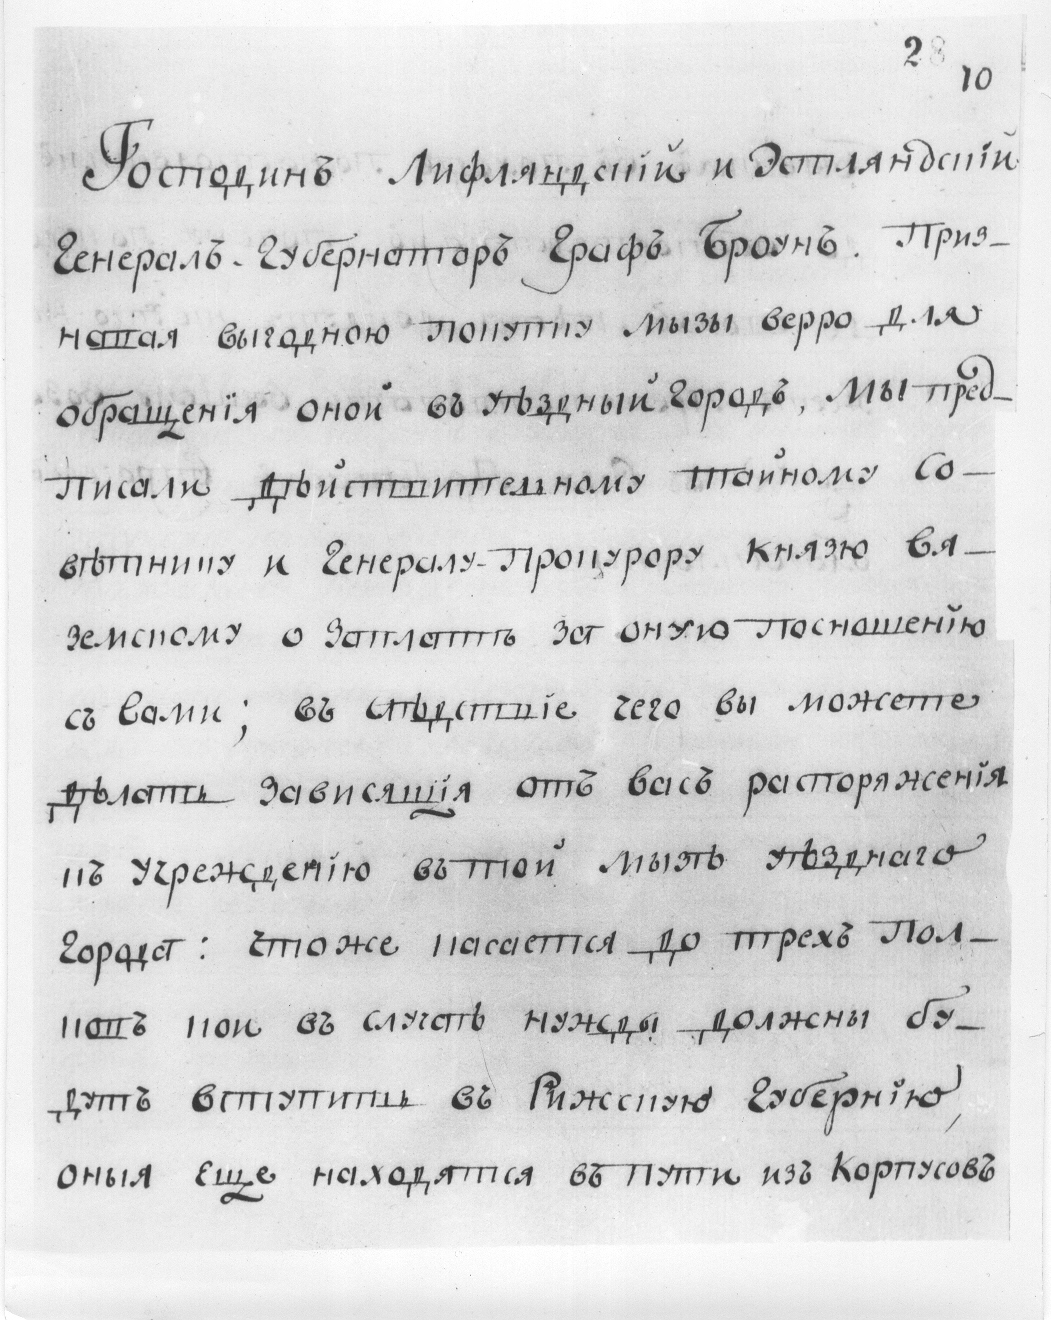 28
10
Господинъ Лифляндскій и Эстляндскій
Генералъ-Губернаторъ Графъ Броунъ. Приз-
навая выгодною покупку мызы верро для
обращенія оной въ уѣздный городъ, Мы пред-
писали дѣйствительному тайному Со-
вѣтнику и Генералу-Прокурору Князю Вя-
земскому о заплатѣ за оную посношенію
съ Вами; въ слѣдствіе чего вы можете
дѣлать зависящія отъ васъ распоряженія
къ учрежденію въ той мызѣ уѣзднаго
города: чтоже касается до трехъ Пол-
ковъ кои въ случаѣ нужды должны бу-
дутъ вступить въ Рижскую Губернію,
оныя еще находятся въ пути изъ Корпусовъ